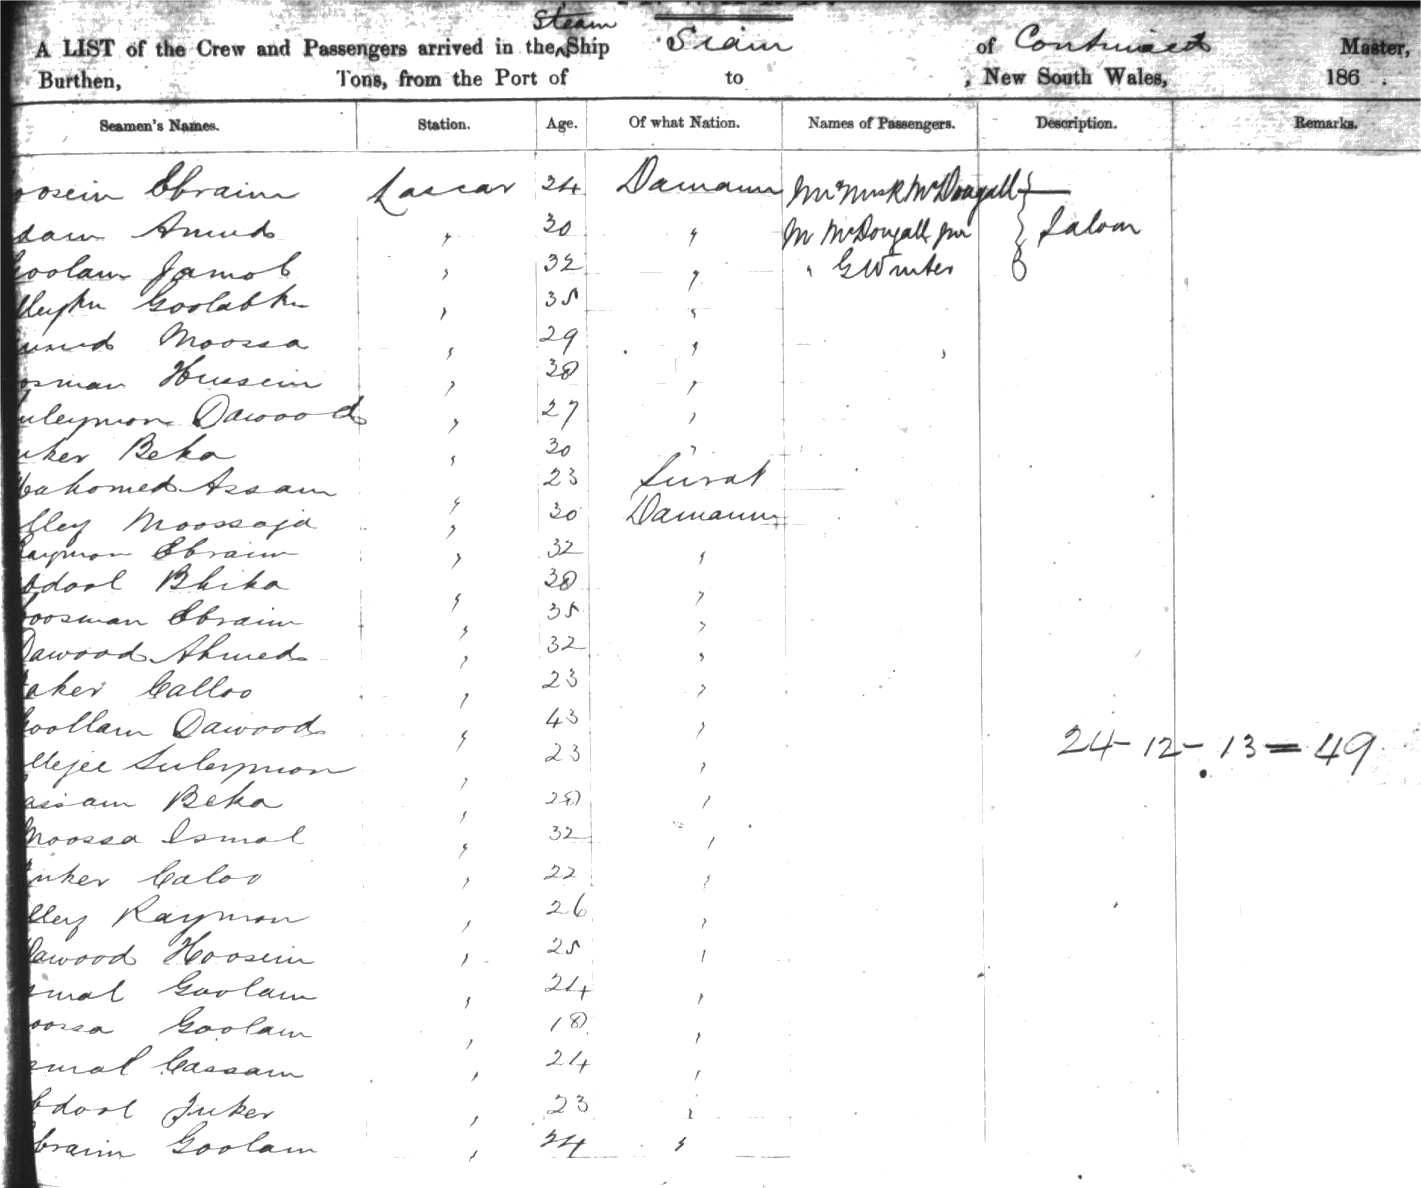 A LIST of the Crew and Passengers arrived in the Steam Ship Siam of Continued Master,
Burthen, Tons, from the Port of to , New South Wales, 186 .
Seamen's Names. Station. Age. Of what Nation. Names of Passengers. Description. Remarks.
oosein Ebraim Lascar 24 Damaun Mr McDougall
30 " M McDougall Jnr Saloon
oolam Jamob " 32 " " G Winter
Goolabhu " 35 "
Moossa " 29 "
osman Hussein " 38 "
uleymon Dawood " 27 "
uker Beka " 30 "
ahomed Assam " 23 Surat
lley Moossaja " 30 Damaun
aymon Ebraim " 32 "
bdool Bhika " 38 "
oosman Ebraim " 35 "
Dawood Ahmed " 32 "
aker Calloo " 23 "
oollam Dawood " 43 "
llejee Suleymon " 23 "
24 - 12 - 13 = 49
assam Beka " 28 "
Moossa Ismal " 32 "
uker Caloo " 22 "
lley Raymon " 26 "
Dawood Hoosein " 25 "
smal Goolam " 24 "
oossa Goolam " 18 "
smal Cassam " 24 "
bdool Juker " 23 "
braim Goolam " 24 "